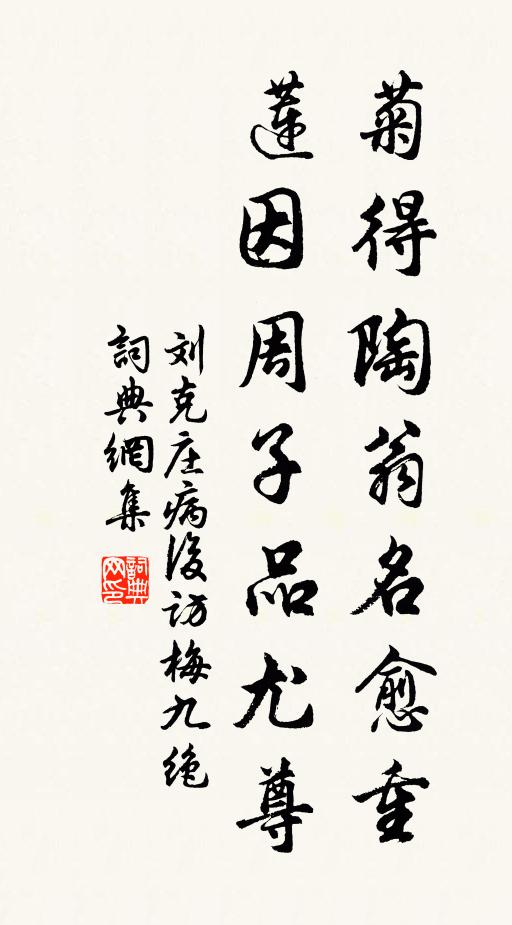 菊得陶翁名愈重
蓮因周子品尤尊
刘克庄病後访梅九绝
詞典網集
詞典网印